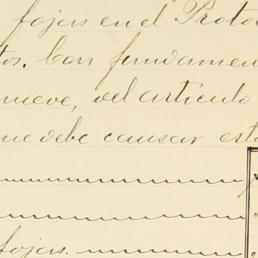 fojas en el Proto
tos. Con fundamen
nueve, del artículo
que debe causar est
fojas.